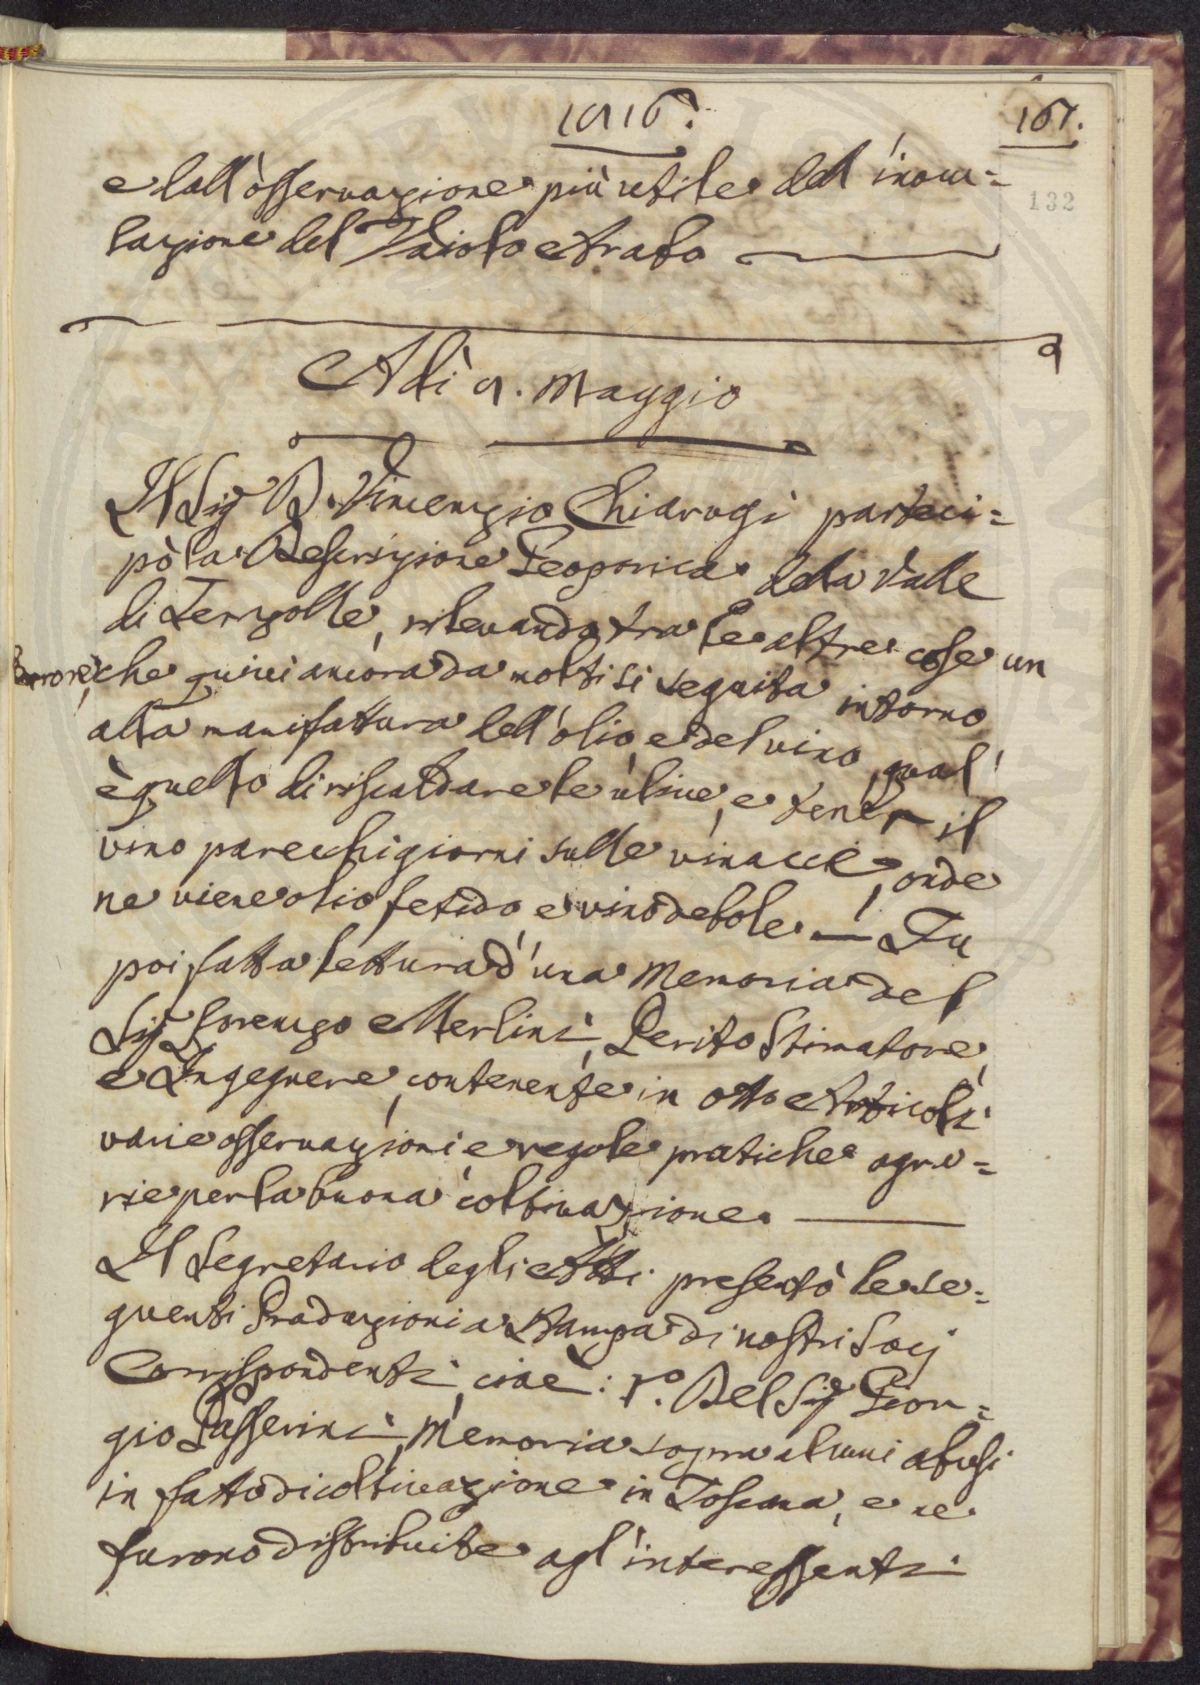 1816.
167.
132
e dall'osservazione più utile dell'inocu=
lazione del Vaiolo Arabo
A dì 9. Maggio
Il Sig D. Vincenzio Chiarugi parteci=
pò la Descrizione Geoponica della Valle
di Terzolle, rilevando tra le altre cose un
Errore, che quivi ancora da molti si seguita intorno
alla manifattura dell'olio, e del vino, qual'
è quello di riscaldare le uline, e tener il
vino parecchi giorni sulle vinacce, onde
ne viene olio fetido, e vino debole. — Fu
poi fatta lettura d'una Memoria del
Sig Lorenzo Merlini, Perito Stimatore,
e Ingegnere, contenente in otto Articoli
varie osservazioni e regole pratiche agra=
rie per la buona coltivazione.
Il Segretario degli Atti presentò le se=
guenti Produzioni a Stampa di nostri Socj
Corrispondenti, cioè: 1.º Del Sig Gior=
gio Passerini, Memoria sopra alcuni abusi
in fatto di coltivazione in Toscana, e ne
furono distribuite agl'interessenti